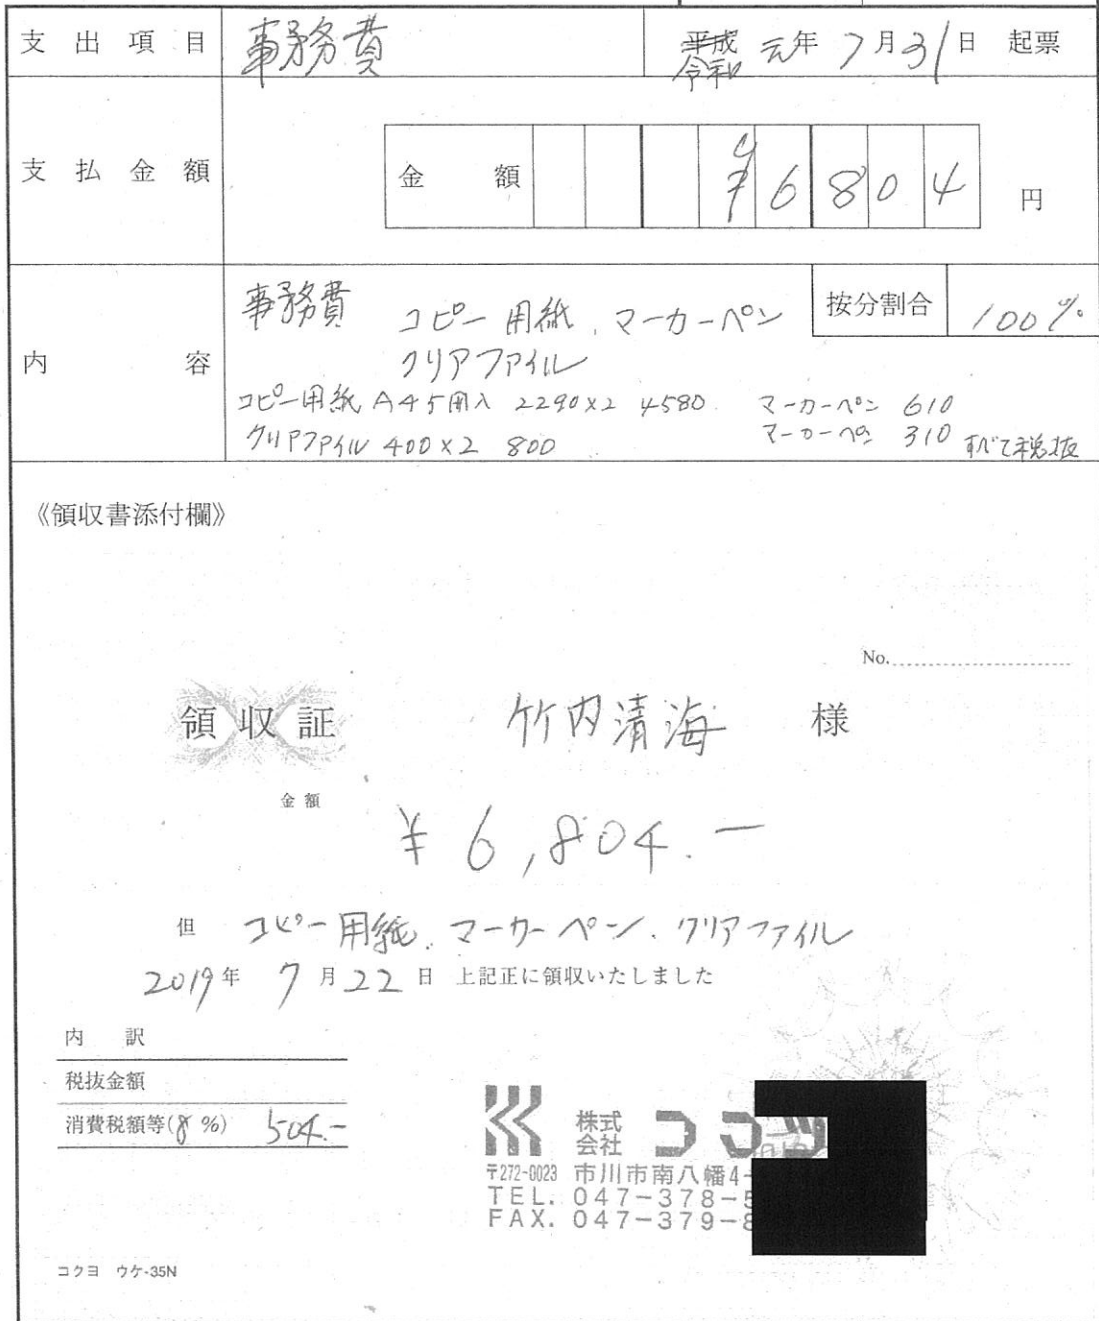 支出項目 事務費 平成 令和 元年 7月31日 起票
支払金額 金額 ¥6804 円
内容 事務費 コピー用紙、マーカーペン 按分割合 100%
クリアファイル
コピー用紙 A4 5冊入 2290×2 4580 マーカーペン 610
クリアファイル 400×2 800 マーカーペン 310 すべて税抜
《領収書添付欄》
No.
領収証 竹内清海 様
金額
¥6,804.―
但 コピー用紙、マーカーペン、クリアファイル
2019年 7月22日 上記正に領収いたしました
内訳
税抜金額
消費税額等(8%) 504.-
株式会社
〒272-0023 市川市南八幡4-
TEL. 047-378-5
FAX. 047-379-8
コクヨ ウケ-35N